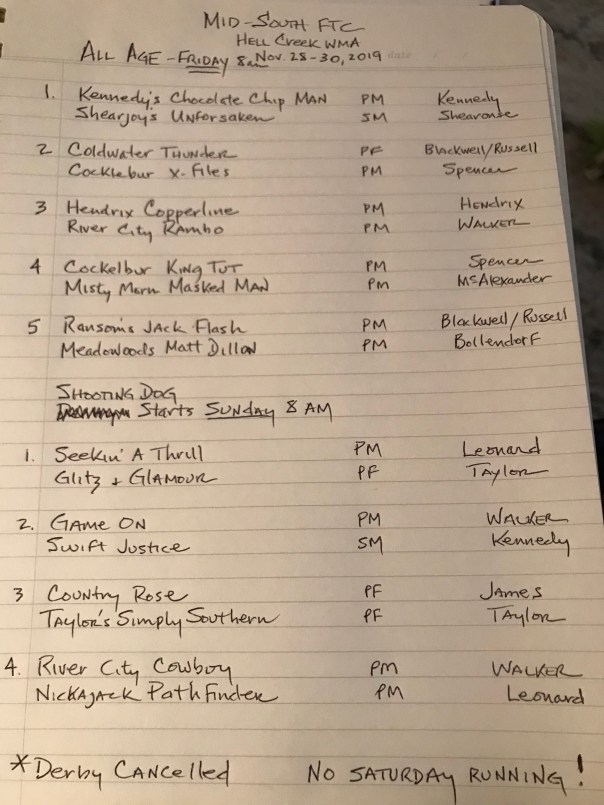 MID-SOUTH FTC
HELL CREEK WMA
ALL AGE - FRIDAY 8am Nov. 28-30, 2019
1. Kennedy's Chocolate Chip MAN PM Kennedy
Shearjoy's UNFORSAKEN SM Shearouse
2 Coldwater THUNDER PF Blackwell/Russell
Cocklebur X-Files PM Spencer
3 Hendrix Copperline PM HENDRIX
River City RAMbo PM WALKER
4 Cockelbur KING TUT PM Spencer
Misty Morn Masked MAN PM McAlexander
5 Ransom's JACK Flash PM Blackwell/Russell
Meadowoods Matt Dillon PM Bollendorf
SHOOTING DOG
Starts SUNDAY 8 AM
1. Seekin' A Thrill PM Leonard
Glitz + GLAMOUR PF TAYLOR
2. GAME ON PM WALKER
Swift Justice SM Kennedy
3 Country Rose PF JAMES
TAYlor's Simply Southern PF TAYlor
4. River City Cowboy PM WALKER
NICKAJACK Pathfinder PM Leonard
*Derby CANCelled NO SATURDAY RUNNING!